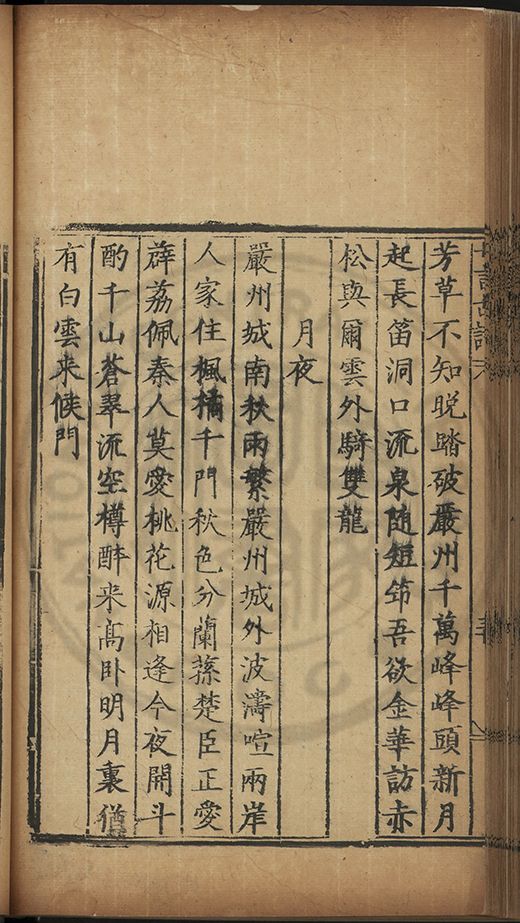 芳草不知晚踏破嚴州千萬峰峰頭新月
起長笛洞口流泉随短笻吾欲金華訪赤
松與爾雲外騎雙龍
月夜
嚴州城南秋雨繁嚴州城外波濤喧兩岸
人家住楓橘千門秋色分蘭蓀楚臣正愛
薜荔佩秦人莫愛桃花源相逢今夜開斗
酌千山蒼翠流空樽醉来高卧明月裏猶
有白雲来候門